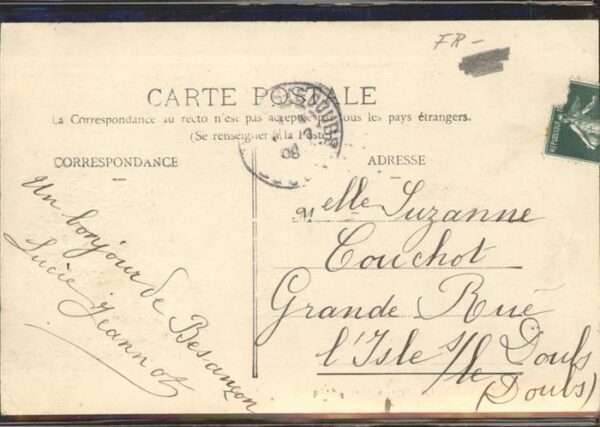 FR-
CARTE POSTALE
La Correspondance au recto n'est pas acceptée par tous les pays étrangers.
(Se renseigner à la Poste)
CORRESPONDANCE
ADRESSE
Un bonjour de Besançon
Lucie Jeannot
Melle Suzanne
Couchot
Grande Rue
l'Isle s/le Doubs
(Doubs)
DOUBS
08